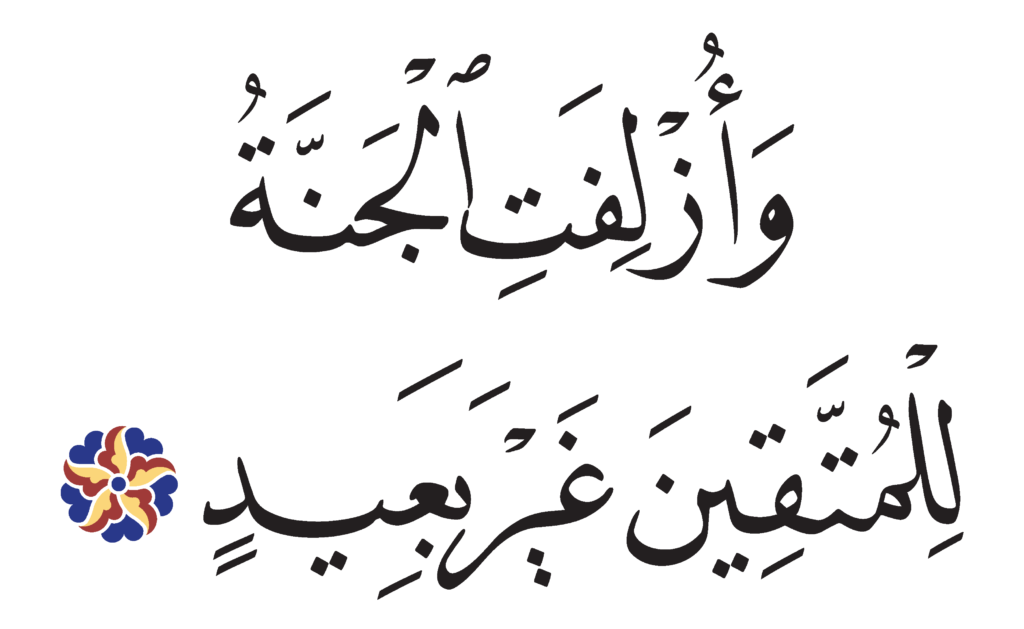 وَأُزْلِفَتِ ٱلْجَنَّةُ
لِلْمُتَّقِينَ غَيْرَ بَعِيدٍ